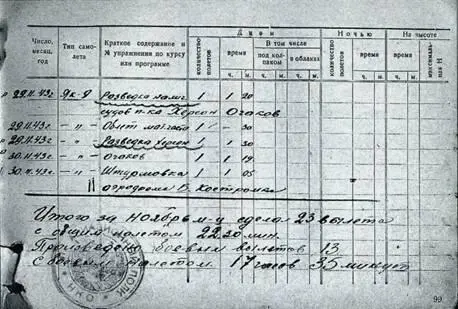 Число, месяц, год
Тип самолета
Краткое содержание и № упражнения по курсу или программе
Днем
Ночью
На высоте
количество полетов
время
В том числе
под колпаком
в облаках
количество полетов
время
время
максимальная Н
ч. м. ч. м. ч. м. ч. м. ч. м.
29.11.43г Як-9 Разведка 1 1 20
п-ка Херсон Очаков
29.11.43г -"- Облет 1 - 30
29.11.43г -"- Разведка Херсон 1 1 30
30.11.43г -"- Очаков 1 1 19
30.11.43г -"- Штурмовка 1 1 05
аэродрома Б. Костромка
Итого за ноябрь м-ц сделал 23 вылета
с общим налетом 22.20 мин.
Произведено боевых вылетов 13
С боевым налетом 17 часов 35 минут
99